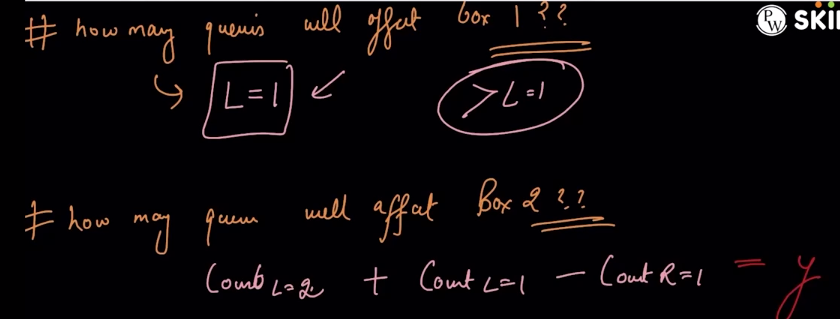 # how may queris will affect box 1 ??
PW SKIL
L=1
> L=1
# how may queris will affect Box 2 ??
Count L=2 + Count L=1 − Count R=1 = y